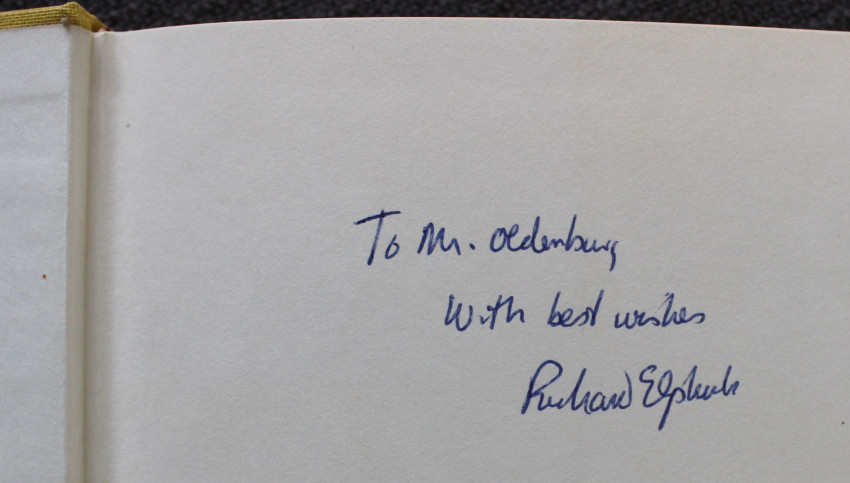 To Mr. Oldenburg
With best wishes
Richard Elphick